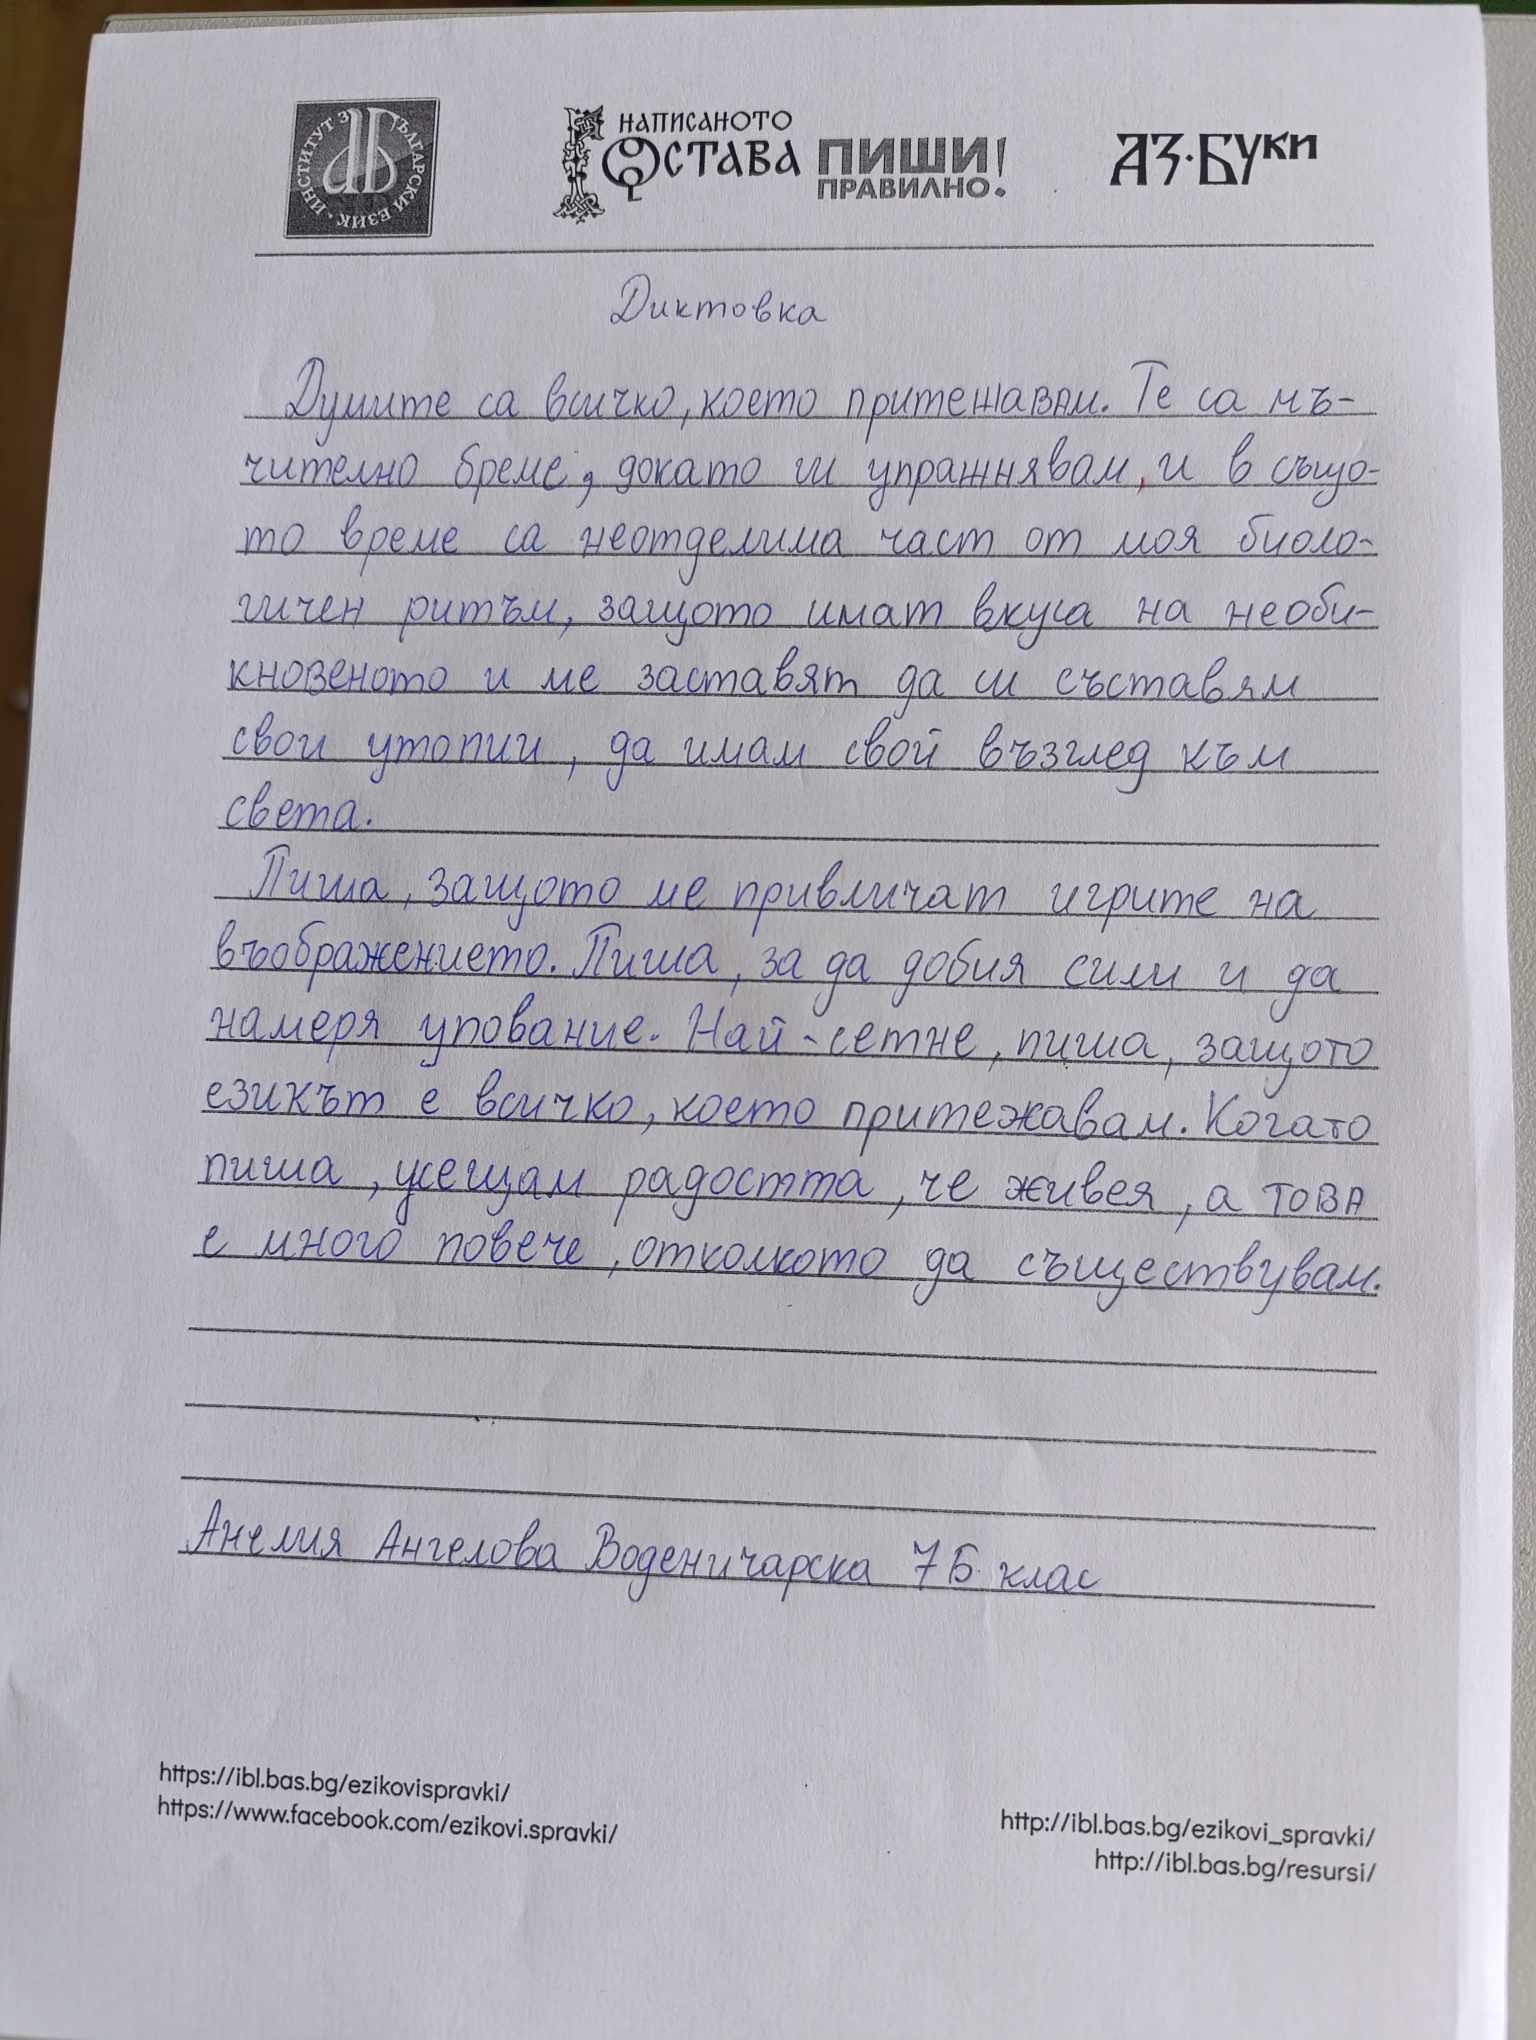 ИНСТИТУТ ЗА БЪЛГАРСКИ ЕЗИК
НАПИСАНОТО
ОСТАВА
ПИШИ!
ПРАВИЛНО.
АЗ·БУКИ
Диктовка
Думите са всичко, което притежавам. Те са мъ-
чително бреме, докато ги упражнявам, и в също-
то време са неотделима част от моя биоло-
гичен ритъм, защото имат вкуса на необи-
кновеното и ме заставят да си съставям
свои утопии, да имам свой възглед към
света.
Пиша, защото ме привличат игрите на
въображението. Пиша, за да добия сили и да
намеря упование. Най-сетне, пиша, защото
езикът е всичко, което притежавам. Когато
пиша, усещам радостта, че живея, а това
е много повече, отколкото да съществувам.
Анелия Ангелова Воденичарска 7Б клас
https://ibl.bas.bg/ezikovispravki/
https://www.facebook.com/ezikovi.spravki/
http://ibl.bas.bg/ezikovi_spravki/
http://ibl.bas.bg/resursi/